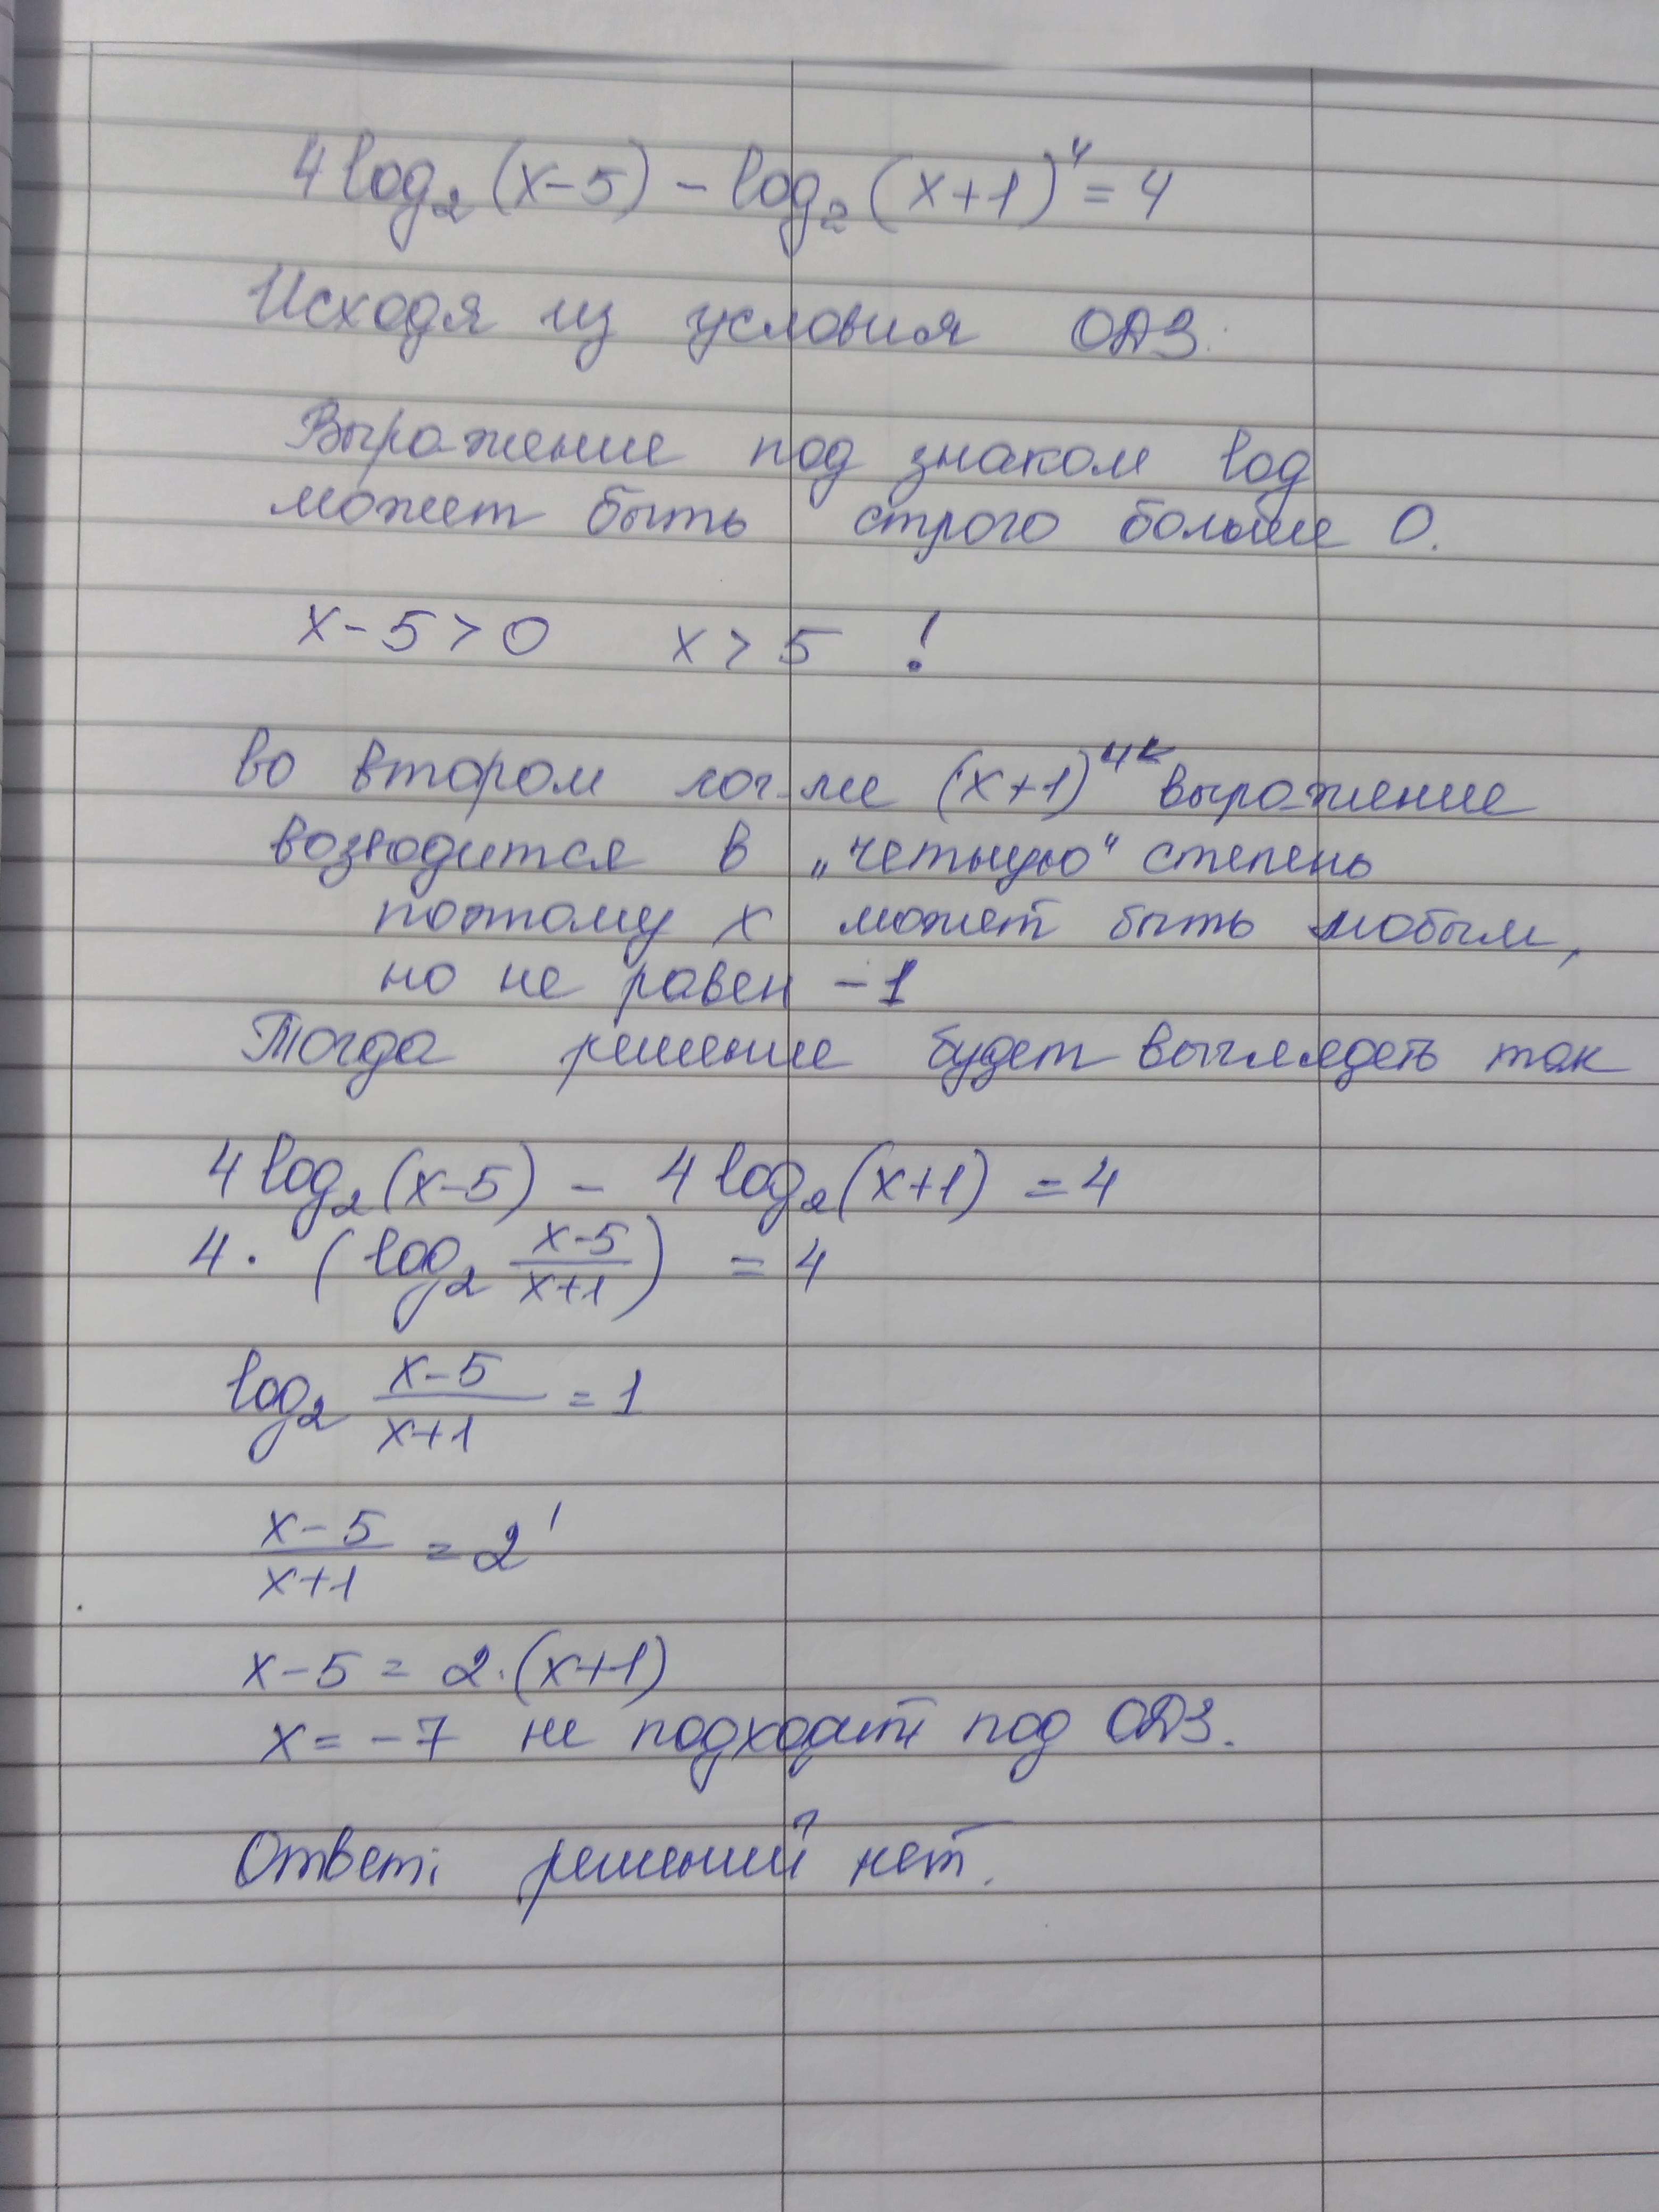 4 log₂ (x-5) - log₂ (x+1)⁴ = 4
Исходя из условия ОДЗ.
Выражение под знаком log
может быть строго больше 0.
x-5>0 x>5 !
во втором лог-ме (x+1)⁴ выражение
возводится в „четную" степень
поэтому x может быть любым,
но не равен -1
Тогда решение будет выглядеть так
4 log₂ (x-5) - 4 log₂ (x+1) = 4
4 · (log₂ (x-5)/(x+1)) = 4
log₂ (x-5)/(x+1) = 1
(x-5)/(x+1) = 2¹
x-5 = 2·(x+1)
x = -7 не подходит под ОДЗ.
Ответ: решений нет.